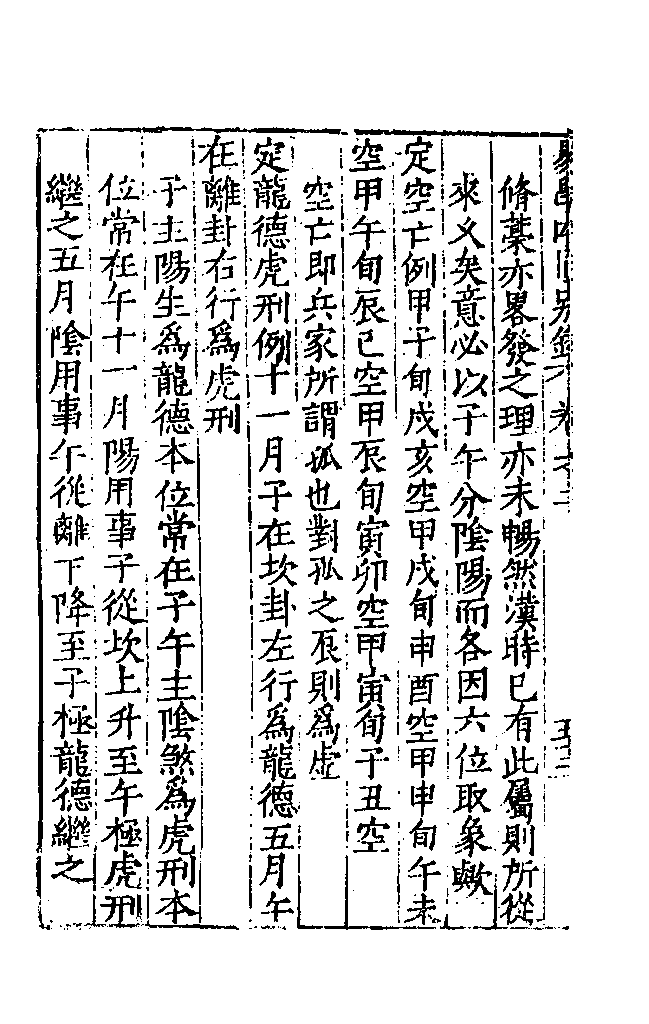 易學四同別錄 卷之二 五十二
脩藁亦畧發之理亦未暢然漢時已有此屬則所從
來乂矣意必以子午分陰陽而各因六位取象歟
定空亡例甲子旬戌亥空甲戌旬申酉空甲申旬午未
空甲午旬辰巳空甲辰旬寅卯空甲寅旬子丑空
空亡即兵家所謂孤也對孤之辰則為虛
定龍德虎刑例十一月子在坎卦左行為龍德五月午
在離卦右行為虎刑
子主陽生為龍德本位常在子午主陰煞為虎刑本
位常在午十一月陽用事子從坎上升至午極虎刑
繼之五月陰用事午從離下降至子極龍德繼之